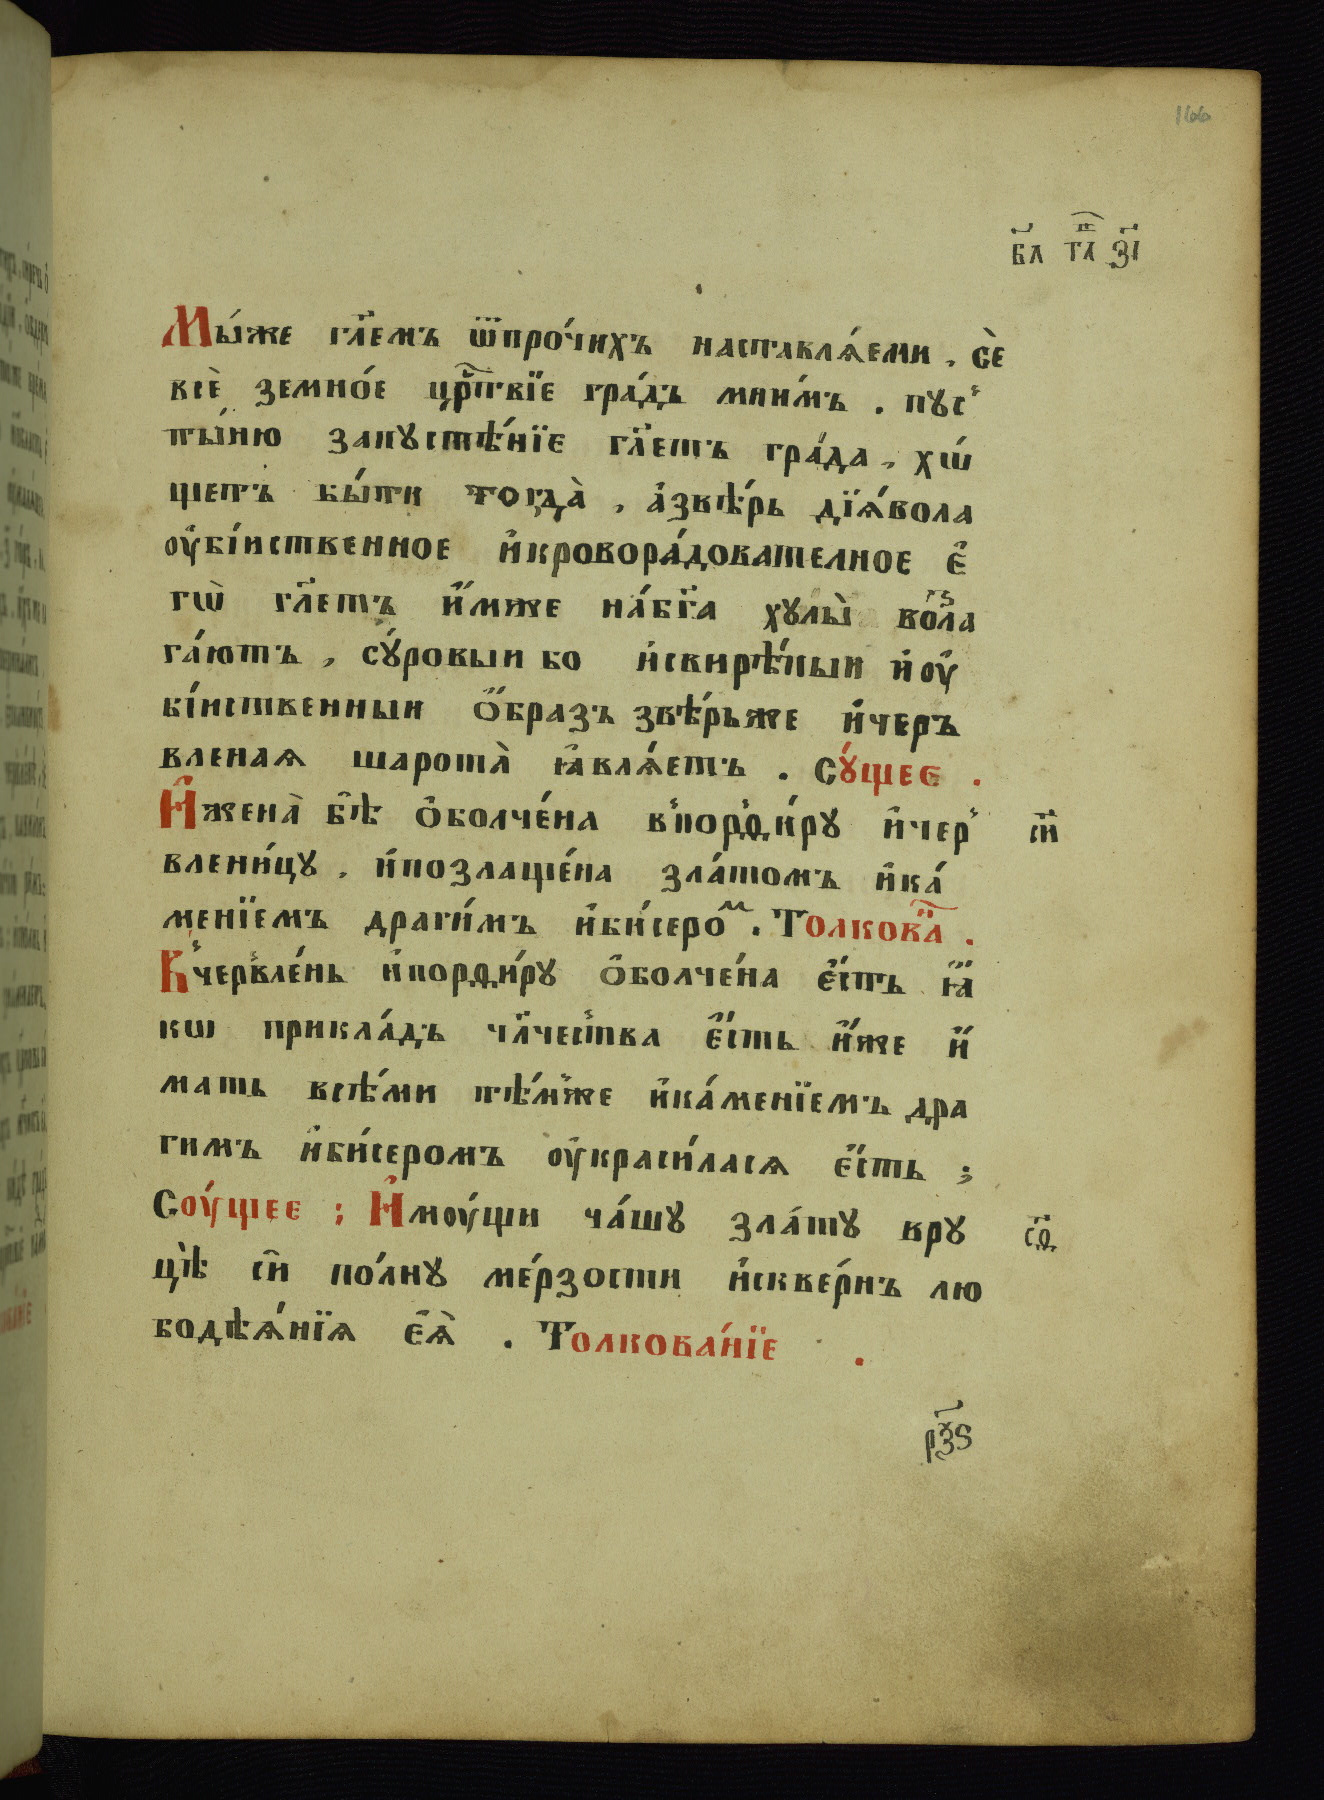 166
в҃л гл҃ѣ з҃і
Мы́же гл҃емъ ѿпро́чихъ наставлѧ́еми , сѐ
всѐ земно́е црⷭ҇твїе гра́дъ мни́мъ . пус̾
ты́ню запустѣ́нїе гл҃етъ гра́да , хѡ́
щетъ бы́ти тогда̀ , а҆звѣ́рь дїѧ́вола
оу҆бі́иственное и҆кроворадователное є҆
гѡ̀ гл҃етъ и҆́мже на́бг҃а хулы̀ возла
га́ютъ , су́ровыи бо и҆свирѣ́пыи и҆оу҆
бі́иственныи ѻ҆́бразъ звѣ́рьже и҆чер
вленаѧ шарота̀ ꙗ҆влѧ́етъ . су́щее .
И҆жена̀ бѣ̀ ѻ҆болче́на в̾порфи́ру и҆чер̾ сн҃
влени́цу , и҆позлаще́на зла́томъ и҆ка́
менїемъ драги́мъ и҆би́сероⷨ . Толкова҃ .
В̾червле́нь и҆порфи́ру ѻ҆болче́на є҆́сть ꙗ҆́
кѡ прикла́дъ чл҃чества є҆́сть и҆́же и҆́
мать всѣ́ми тѣ́мже и҆ка́менїемъ дра
гимъ и҆би́серомъ оу҆краси́ласѧ є҆́сть ;
Соу́щее ; И҆моу́щи ча́шу зла́ту вру сѳ҃
цѣ̀ сн҃ по́лну ме́рзости и҆скве́рнъ лю
бодѣѧ́нїѧ є҆ѧ̀ . Толкова́нїе .
рѯ҃ѕ